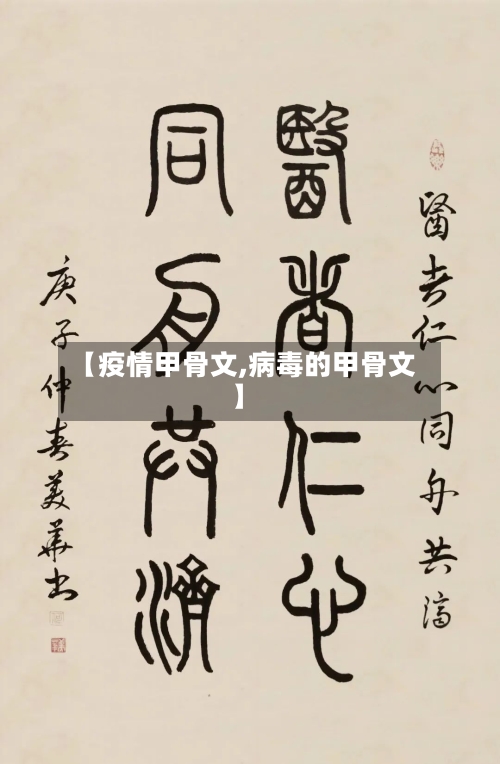 醫者仁心同舟共濟
醫者仁心
同舟共濟
庚子仲春美華书
【疫情甲骨文,病毒的甲骨文
】